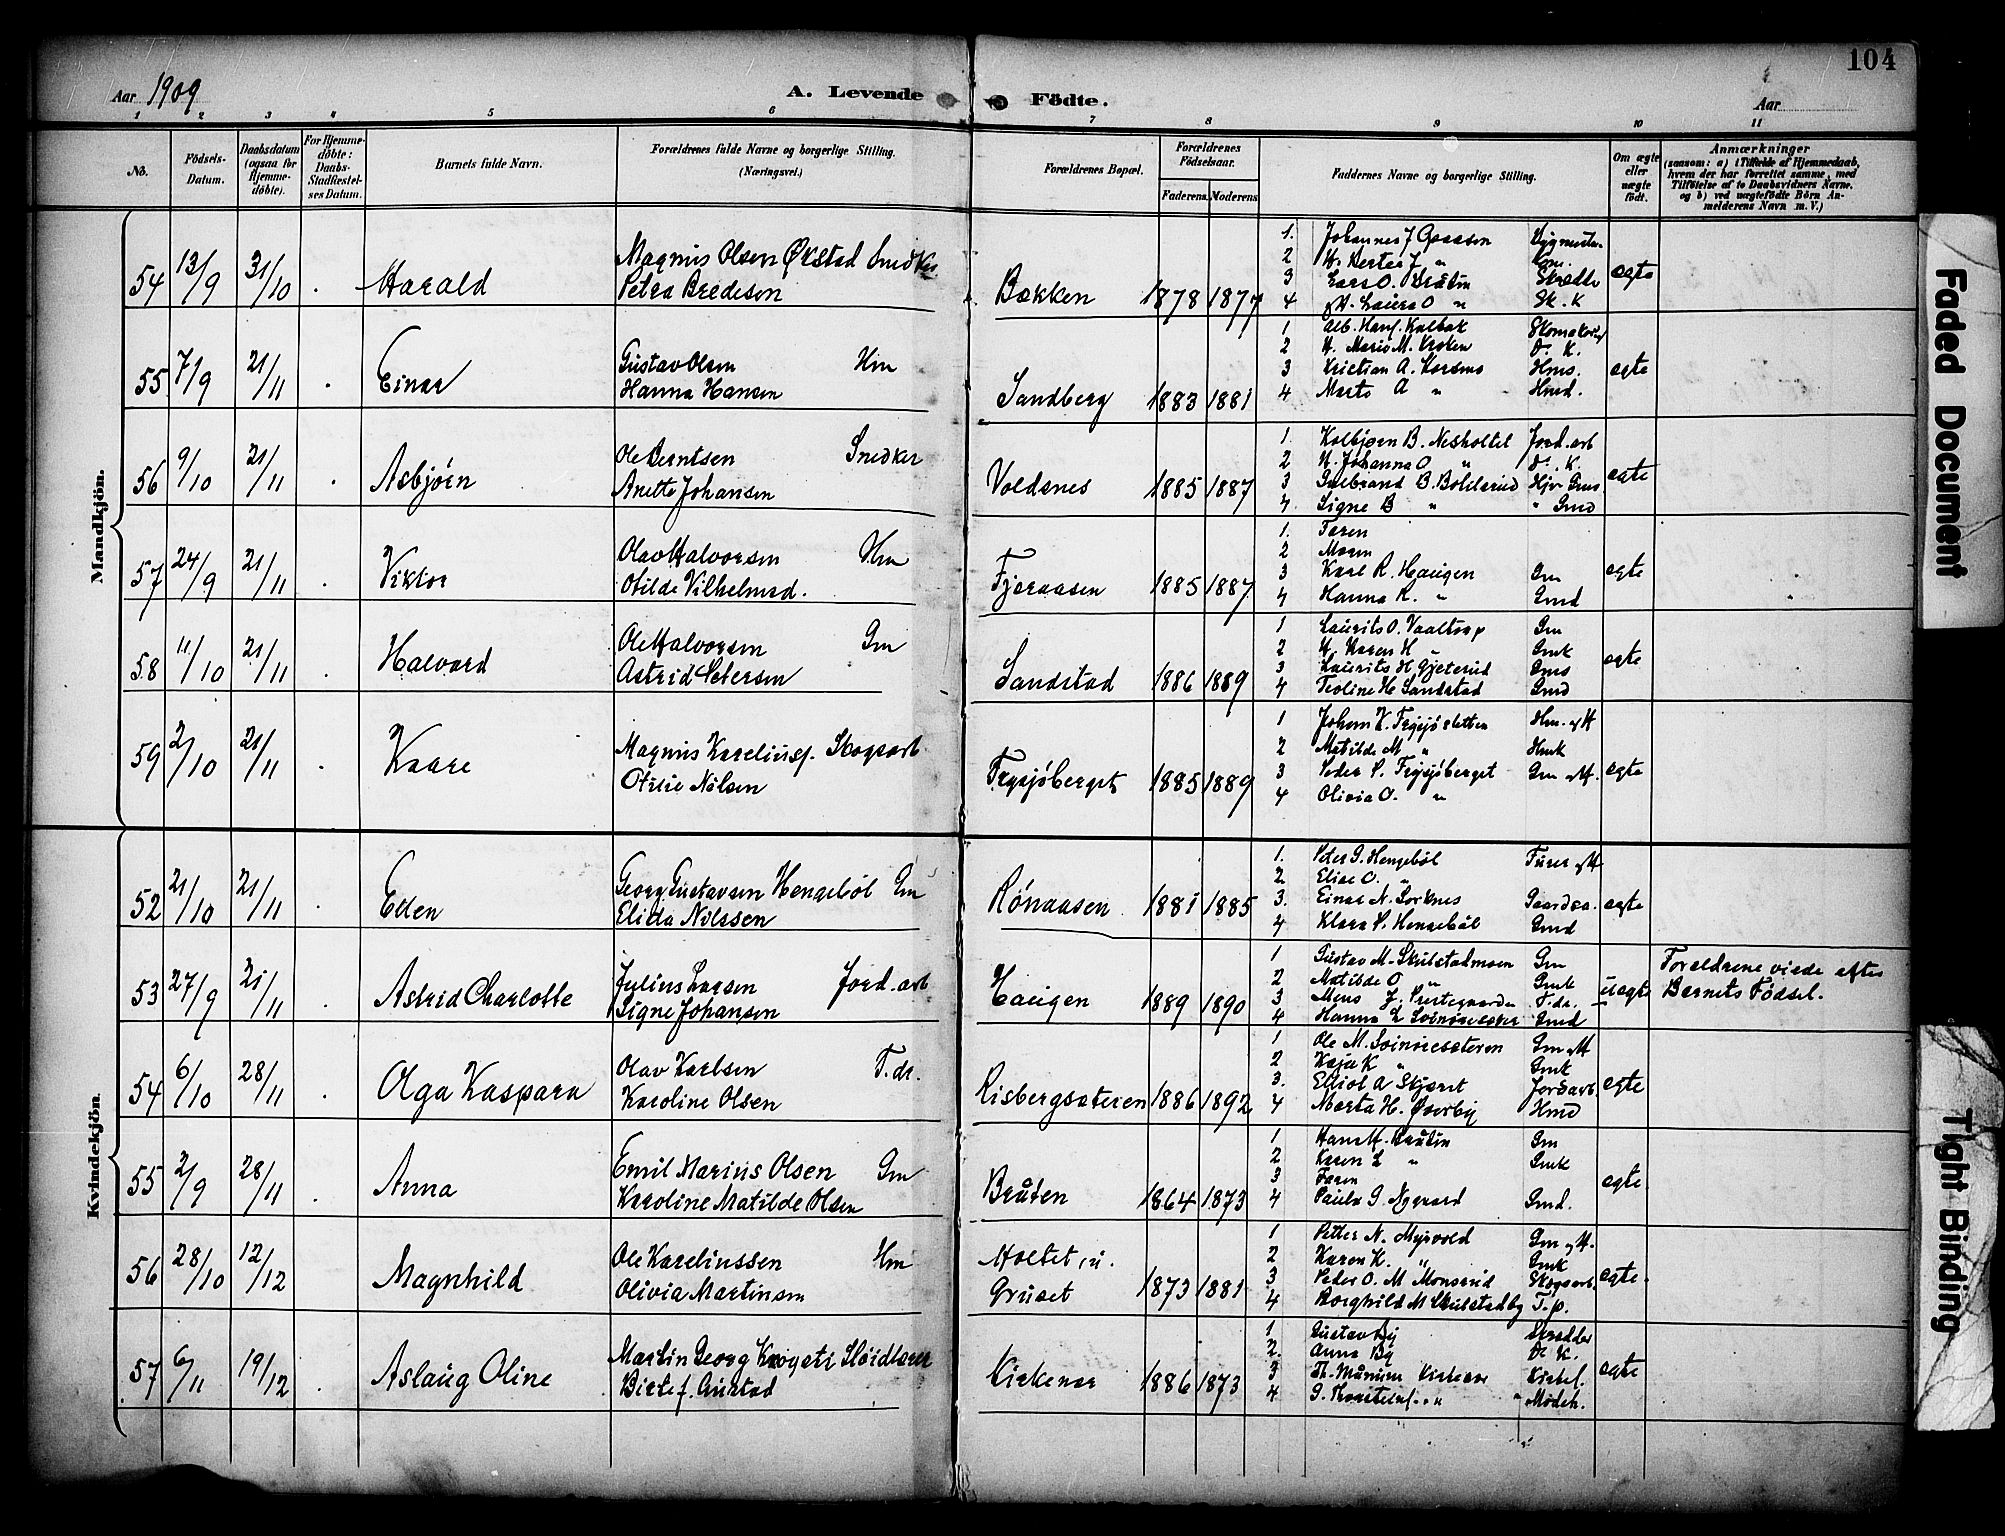 104
Aar 1909
A. Levende Födte.
Aar
1 2 3 4 5 6 7 8 9 10 11
No.
Födsels-Datum.
Daabsdatum (ogsaa for Hjemme-döbte).
For Hjemme-döbte: Daabs-Stadfæstel-ses Datum.
Barnets fulde Navn.
Forældrenes fulde Navne og borgerlige Stilling. (Næringsvei.)
Forældrenes Bopæl.
Forældrenes Födselsaar.
Faderens. Moderens.
Faddernes Navne og borgerlige Stilling.
Om ægte eller uægte födt.
Anmærkninger
(saasom: a) i Tilfælde af Hjemmedaab, hvem der har forrettet samme, med Tilföielse af to Daabsvidners Navne, og b) ved uægtefödte Börn An-melderens Navn m. V.)
Mandkjön.
54 13/9 31/10 Harald
Magnus Olsen Økstad Snedker
Petra Bredesen
Bakken 1878 1877
1.
2
3 Lars O. Bråten
4
ægte
55 7/9 21/11 Einar
Gustav Olsen Hm
Hanna Hansen
Sandberg 1883 1881
1
2
3 Kristian A. Korsmo Hms.
4 Marte A " Hmd.
ægte
56 9/10 21/11 Asbjørn
Ole Berntsen Snedker
Anette Johansen
Voldsnes 1885 1887
1. Kolbjørn B. Nesholtet Jord.arb
2 H. Johanna O " D. K.
3 Gulbrand B.
4. Signe B " " Gmd
ægte
57 24/9 21/11 Viktor
Olav Halvorsen Hm
Otilde Vilhelmsd.
Fjeraasen 1885 1887
1. Faren
2 Moren
3 Karl R. Haugen Gm
4 Hanna R. " Gmd
ægte
58 11/10 21/11 Halvard
Ole Halvorsen Gm
Astrid Petersen
Sandstad 1886 1889
1 Laurits O. Vaaltorp Gm
2 H. Karen H " Gmk
3 Laurits H Gjeterud Gms
4 Teoline H. Sandstad Gmd
ægte
59 2/10 21/11 Kaare
Magnus Kareliusf. Skogsarb.
Otilie Nilsen
Frysjøberget 1885 1889
1 Johan K. Frysjøsletten Hm. og H
2 Matilde M " Hmk
3 Peder P. Frysjøberget Gm og H.
4 Olivia O. "
ægte
Kvindekjön.
52 21/10 21/11 Ellen
Georg Gustavsen Hengebøl Gm
Elida Nilssen
Rønaasen 1881 1885
1. Peter G. Hengebøl
2. Elise O. "
3. Einar N. Sorknes
4 Klara P. Hengebøl Gmd
ægte
53 27/9 21/11 Astrid Charlotte
Julius Larsen Jord.arb
Signe Johansen
Haugen 1889 1890
1 Gustav M. Skulstadmoen Gm
2 Matilde O " Gmk
3 Mens J. F.dr.
4 Hanna L Gmd
uægte
Forældrene viede efter Barnets Fødsel.
54 6/10 28/11 Olga Kaspara
Olav Karlsen F.dr.
Karoline Olsen
Risbergsæteren 1886 1892
1 Ole M. Gm og H
2 Kaja K " Gmk
3. Elliot A Skjæret Jordarb.
4 Marta H. Øverby Hmd
ægte
55 2/9 28/11 Anna
Emil Marius Olsen Gm
Karoline Matilde Olsen
Bråten 1864 1873
1 Hans H. Bråten Gm
2 Karen L " Gmk
3 Faren
4 Paula G. Nygaard Gmd.
ægte
56 28/10 12/12 Magnhild
Ole Kareliussen Hm
Olivia Martinsen
Holtet, u. Gruset 1873 1881
1 Petter N. Myrvold Gm og H.
2 Karen K. " Gmk
3 Peder O. M Monsrud Skogsarb.
4 Borghild M Skulstadby T.p.
ægte
57 6/11 19/12 Aslaug Oline
Martin Georg Krogseti Sløidlærer
Birte f. Grustad
Kirkenær 1886 1873
1 Gustav By Skrædder
2. Anna By D. K.
3 Th. Kirkenær
4
ægte
Faded Document
Tight Binding